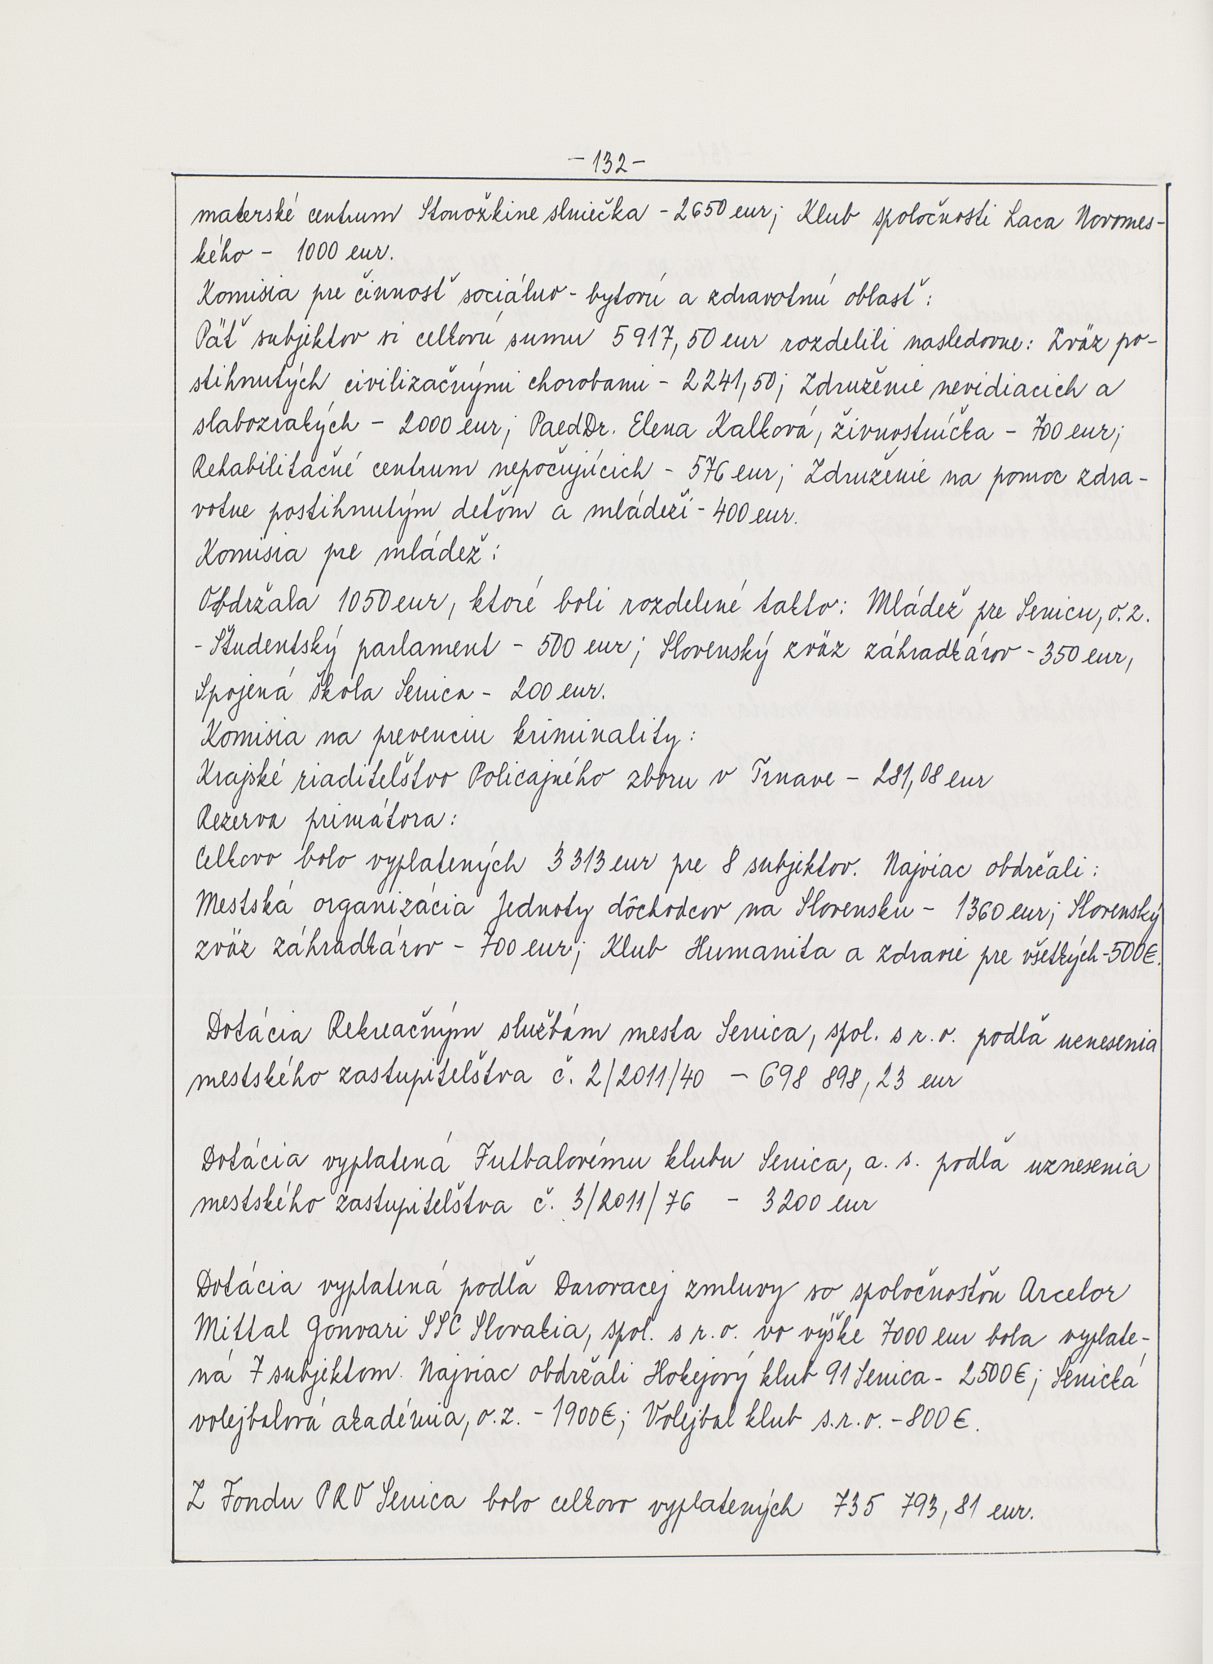 -132-
materské centrum Stonožkine slniečka - 2650 eur; Klub spoločnosti Laca Novomes-
kého - 1000 eur.
Komisia pre činnosť sociálno-bytovú a zdravotnú oblasť:
Päť subjektov si celkovú sumu 5917,50 eur rozdelili nasledovne: Zväz po-
stihnutých civilizačnými chorobami - 2241,50; Združenie nevidiacich a
slabozrakých - 2000 eur; PaedDr. Elena Kalková, živnostníčka - 700 eur;
Rehabilitačné centrum nepočujúcich - 576 eur; Združenie na pomoc zdra-
votne postihnutým deťom a mládeži - 400 eur.
Komisia pre mládež:
Obdržala 1050 eur, ktoré boli rozdelené takto: Mládež pre Senicu, o.z.
- Študentský parlament - 500 eur; Slovenský zväz záhradkárov - 350 eur,
Spojená škola Senica - 200 eur.
Komisia na prevenciu kriminality:
Krajské riaditeľstvo Policajného zboru v Trnave - 281,08 eur
Rezerva primátora:
Celkovo bolo vyplatených 3313 eur pre 8 subjektov. Najviac obdržali:
Mestská organizácia Jednoty dôchodcov na Slovensku - 1360 eur; Slovenský
zväz záhradkárov - 700 eur; Klub Humanita a zdravie pre všetkých - 500€.
Dotácia Rekreačným službám mesta Senica, spol. s r.o. podľa uznesenia
mestského zastupiteľstva č. 2/2011/40 - 698 898,23 eur
Dotácia vyplatená Futbalovému klubu Senica, a.s. podľa uznesenia
mestského zastupiteľstva č. 3/2011/76 - 3200 eur
Dotácia vyplatená podľa Darovacej zmluvy so spoločnosťou Arcelor
Mittal Gonvari SSC Slovakia, spol. s r.o. vo výške 7000 eur bola vyplate-
ná 7 subjektom. Najviac obdržali Hokejový klub 91 Senica - 2500€; Senická
volejbalová akadémia, o.z. - 1900€; Volejbal klub s.r.o. - 800€.
Z Fondu PRO Senica bolo celkovo vyplatených 735 793,81 eur.